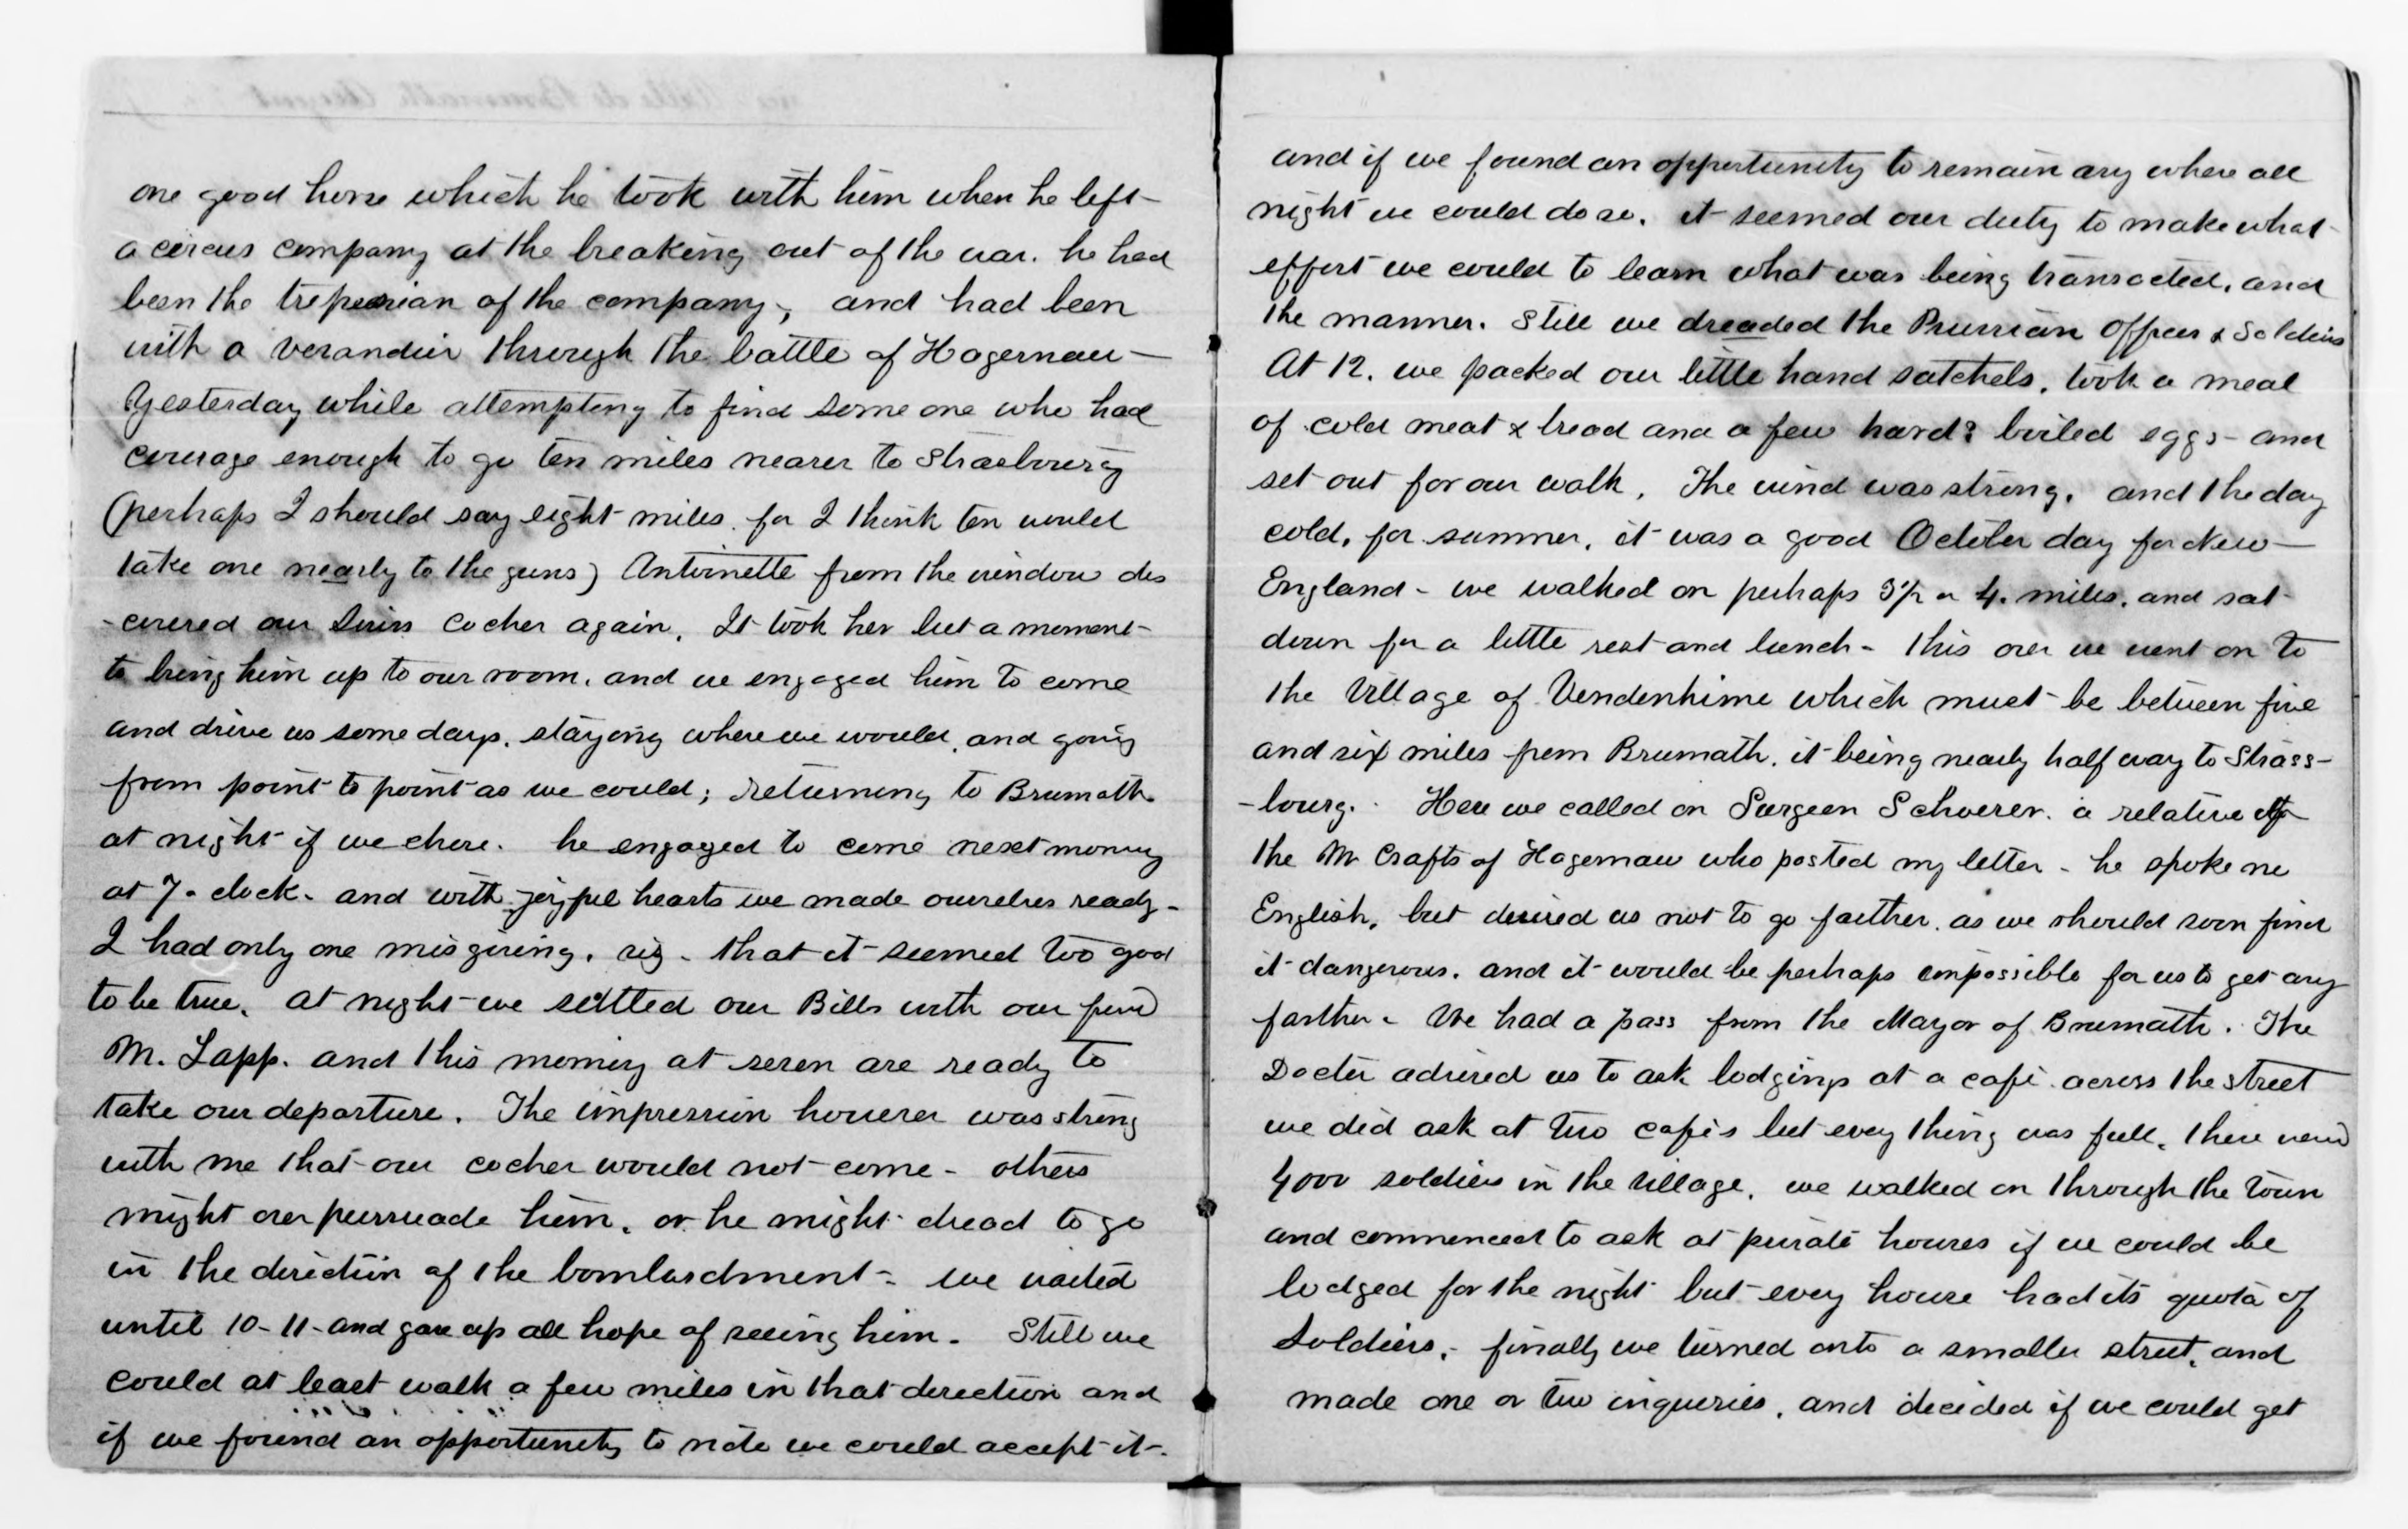 one good horse which he took with him when he left
a circus company at the breaking out of the war. he had
been the of the company, and had been
with a through the battle of Hagernau —
Yesterday while attempting to find some one who had
courage enough to go ten miles nearer to Strasbourg
(perhaps I should say eight miles. for I think ten would
take one nearly to the guns) Antoinette from the window dis
-covered our Swiss Cocher again. It took her but a moment
to bring him up to our room, and we engaged him to come
and drive us some days, staying where we would, and going
from point to point as we could; returning to Brumath
at night if we chose. he engaged to come next morning
at 7 - clock. and with joyful hearts we made ourselves ready -
I had only one misgiving. viz - that it seemed too good
to be true. at night we settled our Bills with our friend
M. Lapp. and this morning at seven are ready to
take our departure. The impression however was strong
with me that our cocher would not come - others
might over persuade him, or he might dread to go
in the direction of the bombardment - we waited
until 10 - 11 - and gave up all hope of seeing him - Still we
could at least walk a few miles in that direction and
if we found an opportunity to ride we could accept it -
and if we found an opportunity to remain any where all
night we could do so. it seemed our duty to make what
effort we could to learn what was being transacted, and
the manner. Still we dreaded the Prussian Officers & Soldiers
At 12. we packed our little hand satchels, took a meal
of cold meat & bread and a few hard? boiled eggs - and
set out for our walk. The wind was strong, and the day
cold, for summer, it was a good October day for New —
England - we walked on perhaps 3½ or 4. miles. and sat
down for a little rest and lunch - this over we went on to
the Village of Vendenhime which must be between five
and six miles from Brumath. it being nearly half way to Strass-
-bourg. Here we called on Surgeon Schverer. a relative of
the M Crafts of Hagernaw who posted my letter - he spoke no
English, but desired us not to go farther. as we should soon find
it dangerous. and it would be perhaps impossible for us to get any
farther - We had a pass from the Mayor of Brumath. The
Doctor advised us to ask lodgings at a café across the street
we did ask at two cafés but every thing was full. there were
4000 soldiers in the village. we walked on through the town
and commenced to ask at private houses if we could be
lodged for the night but every house had its quota of
Soldiers. finally we turned onto a smaller street, and
made one or two inqueries, and decided if we could get